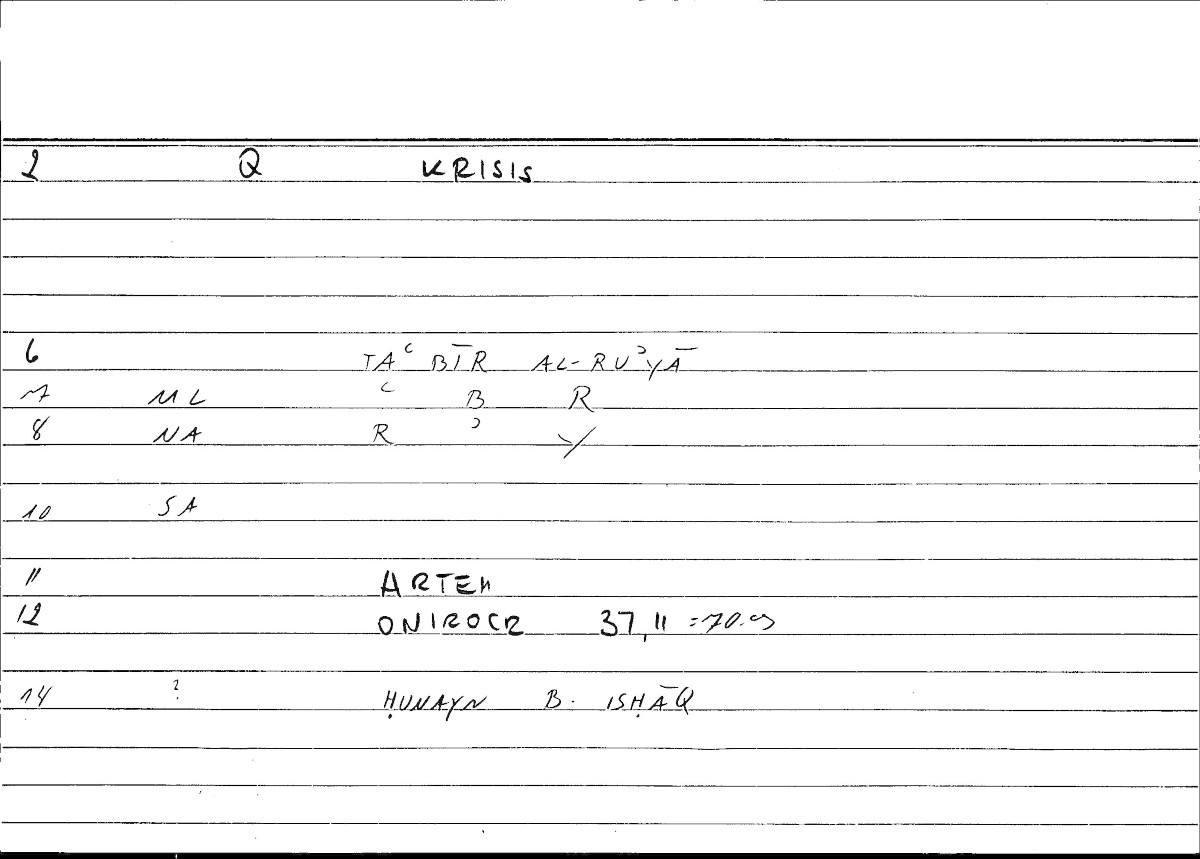 2 Q KRISIS
6 TAʿBĪR AL-RUʾYĀ
7 ML ʿ B R
8 NA R ʾ Y
10 SA
11 ARTEM
12 ONIROCR 37,11 =70.9
14 ? ḤUNAYN B. ISḤĀQ